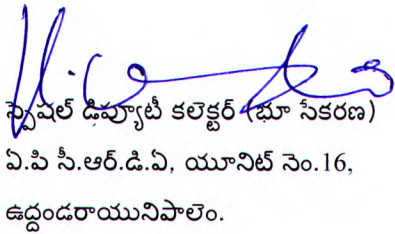 స్పెషల్ డిప్యూటీ కలెక్టర్ (భూ సేకరణ)
ఏ.పి సీ.ఆర్.డి.ఏ, యూనిట్ నెం.16,
ఉద్దండరాయునిపాలెం.